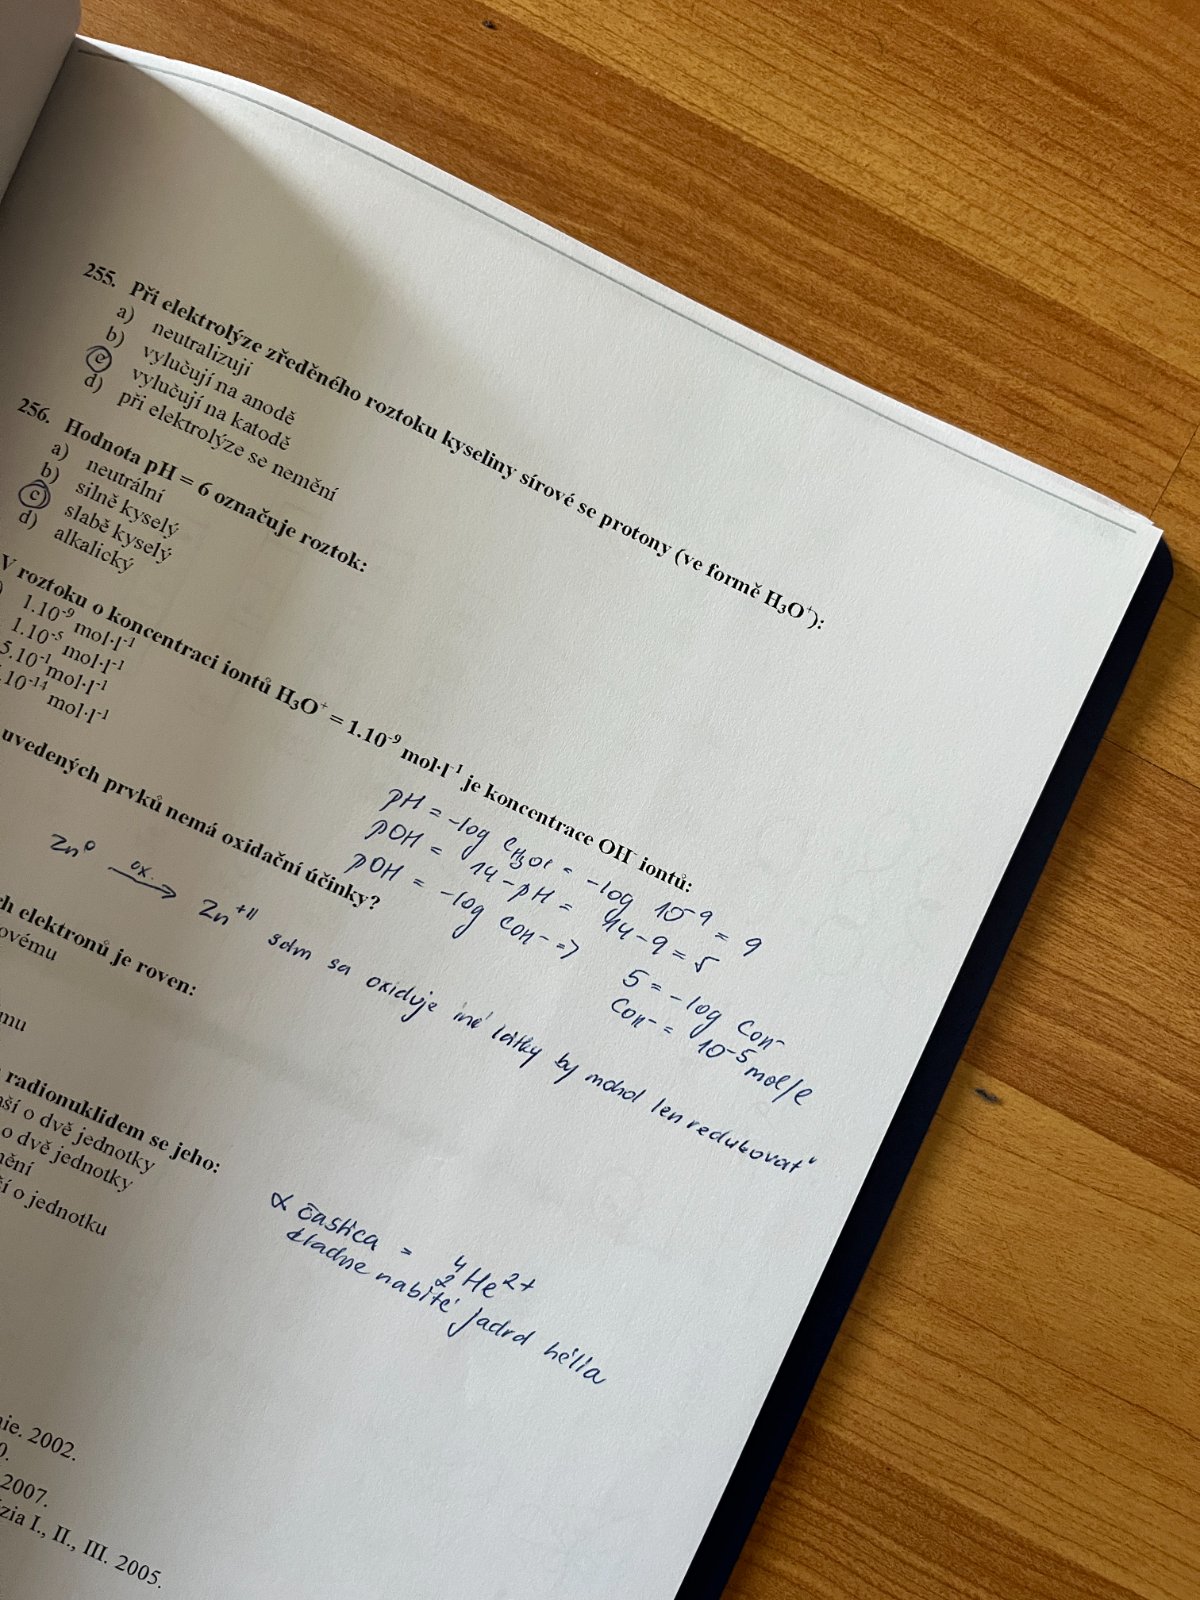 255. Při elektrolýze zředěného roztoku kyseliny sírové se protony (ve formě H₃O⁺):
a) neutralizují
b) vylučují na anodě
c) vylučují na katodě
d) při elektrolýze se nemění
256. Hodnota pH = 6 označuje roztok:
a) neutrální
b) silně kyselý
c) slabě kyselý
d) alkalický
V roztoku o koncentraci iontů H₃O⁺ = 1.10⁻⁹ mol·l⁻¹ je koncentrace OH⁻ iontů:
1.10⁻⁹ mol·l⁻¹
1.10⁻⁵ mol·l⁻¹
5.10⁻¹ mol·l⁻¹
.10⁻¹⁴ mol·l⁻¹
pH = -log cH₃O+ = -log 10⁻⁹ = 9
pOH = 14 - pH = 14 - 9 = 5
pOH = -log cOH⁻ =>
5 = -log cOH⁻
cOH⁻ = 10⁻⁵ mol/l
uvedených prvků nemá oxidační účinky?
Zn⁰ ox. → Zn⁺ᴵᴵ sám sa oxiduje iné látky by mohol len redukovať
ch elektronů je roven:
ovému
mu
radionuklidem se jeho:
ší o dvě jednotky
o dvě jednotky
nění
í o jednotku
α častica = ⁴₂He²⁺
kladne nabité jadrá hélia
nie. 2002.
0.
2007.
ézia I., II., III. 2005.